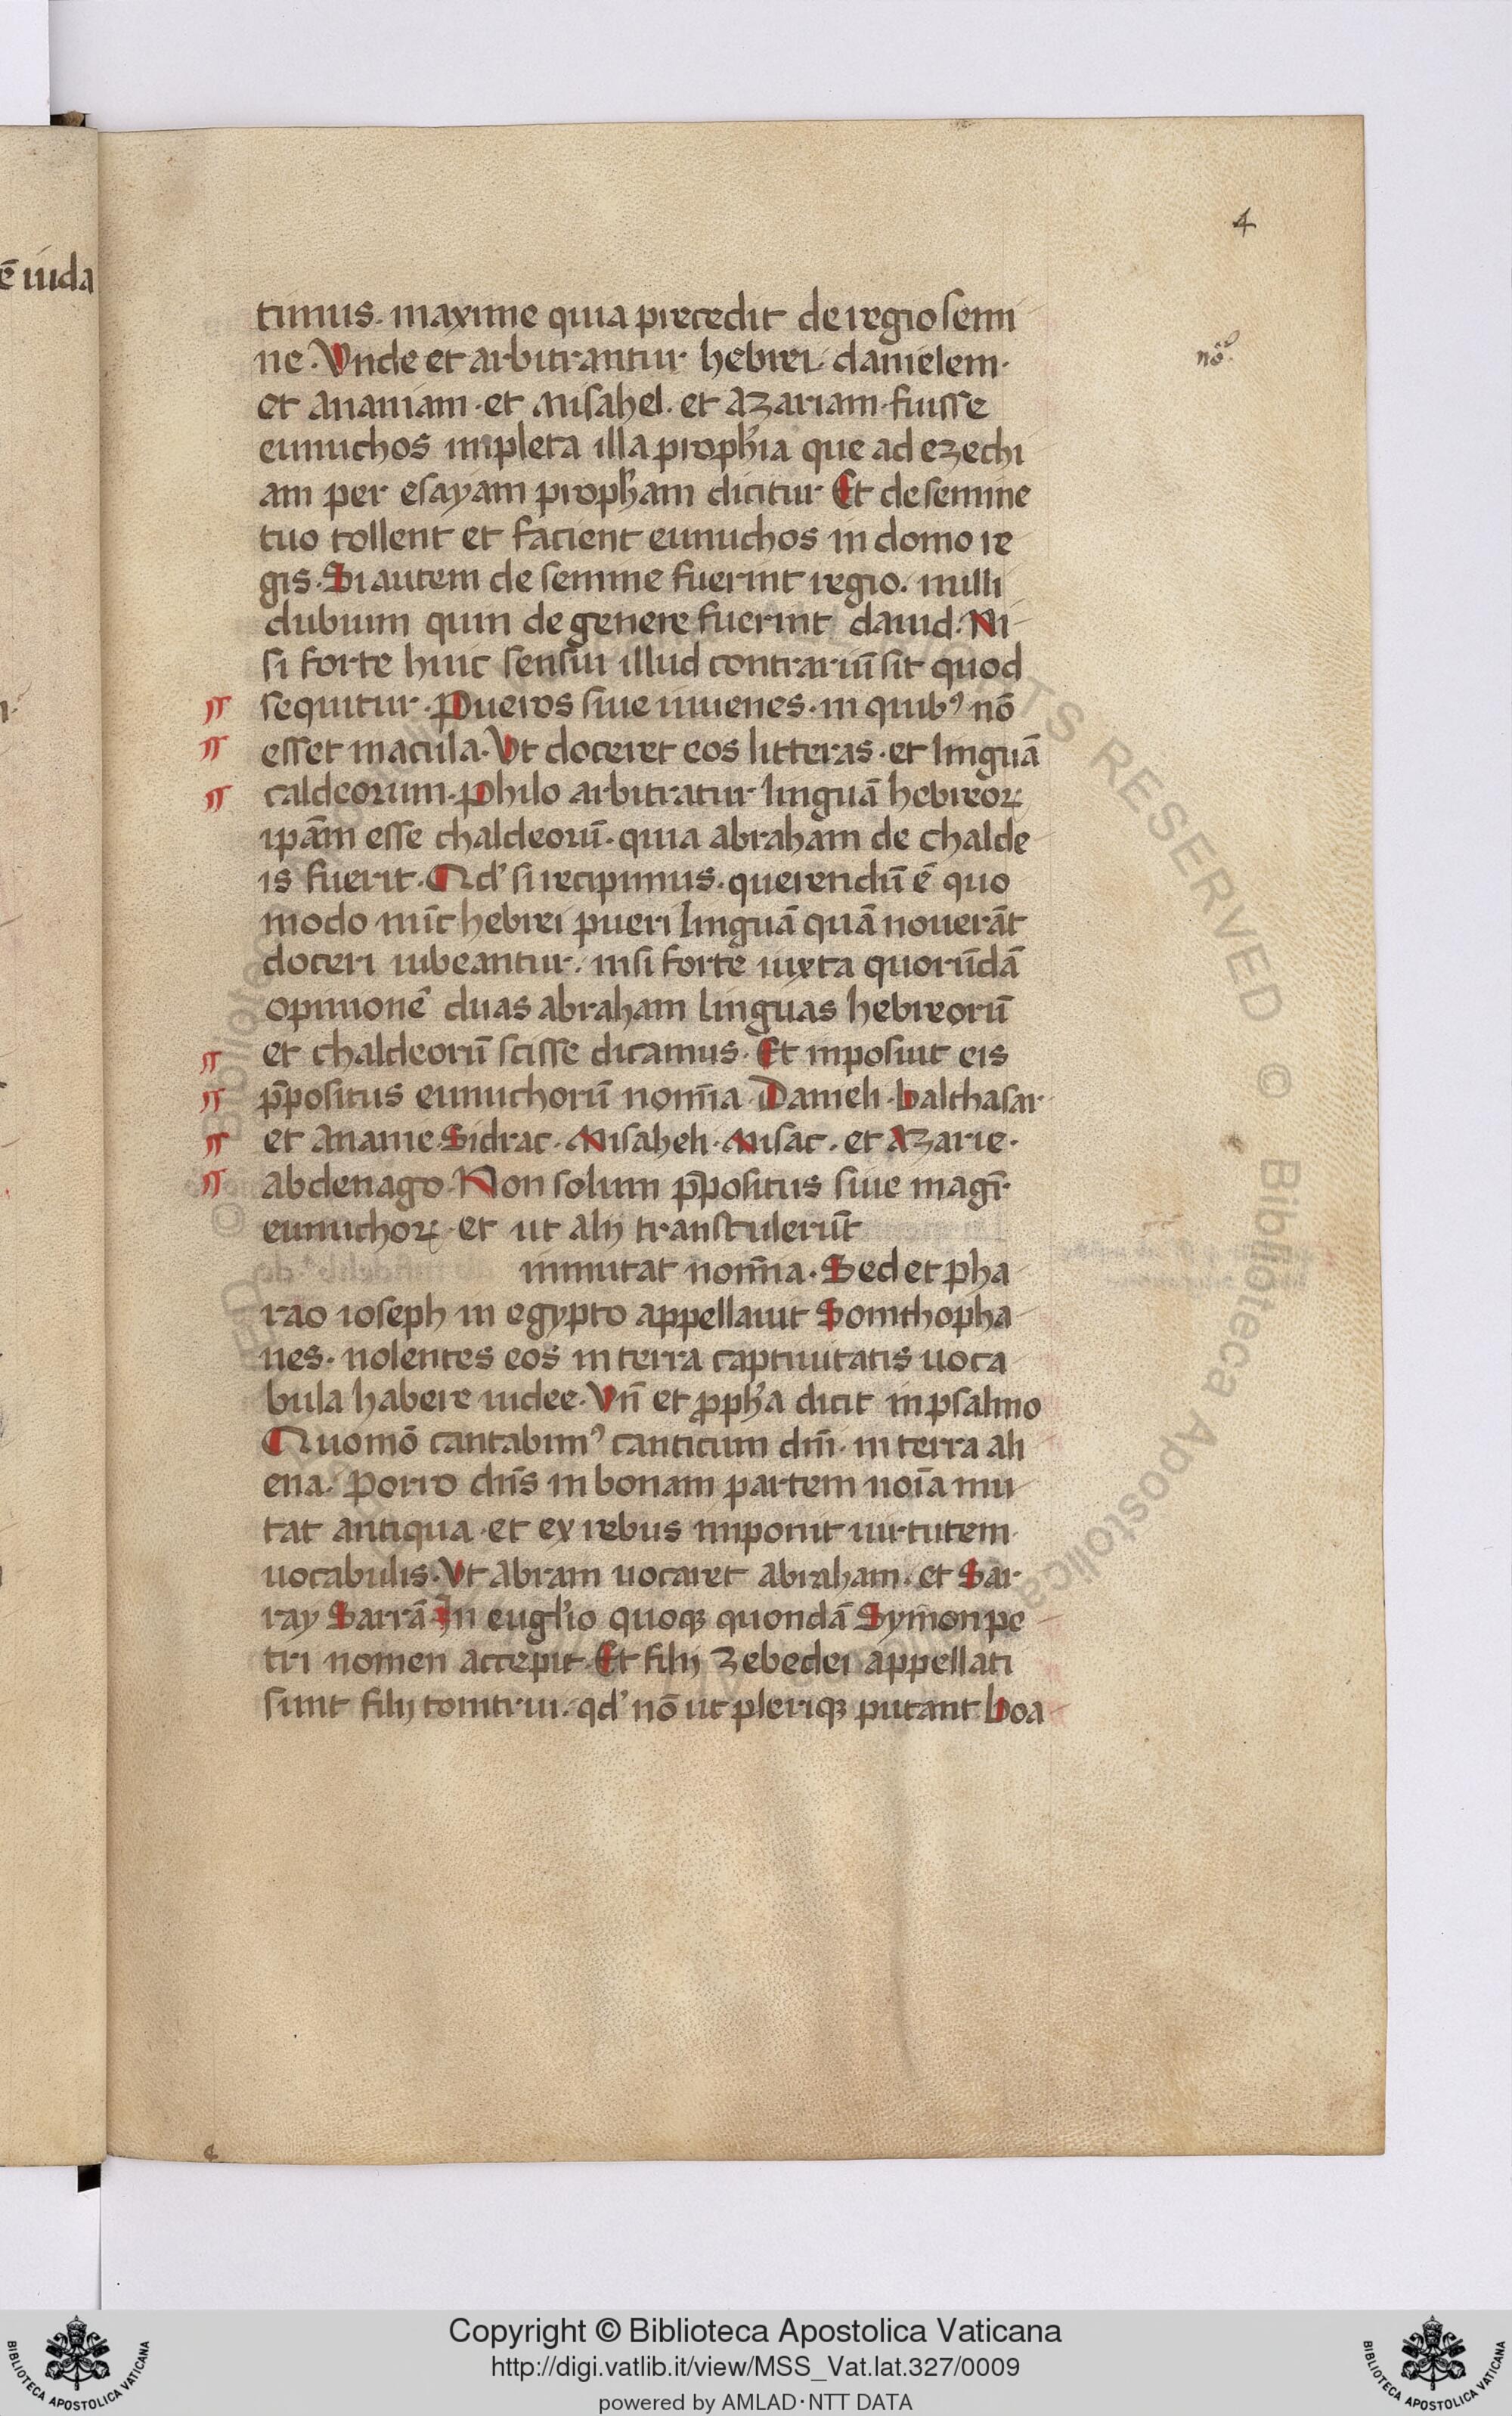 ē iuda
4
timus. maxime quia precedit de regio semi
ne. Vnde et arbitrantur hebrei. danielem.
nō.
et ananiam. et misahel. et azariam. fuisse
eunuchos impleta illa proph̄ia que ad ezechi
am per esayam proph̄am dicitur Et de semine
tuo tollent et facient eunuchos in domo re
gis. Si autem de semine fuerint regio. nulli
dubium quin de genere fuerint dauid. Ni
si forte huic sensui illud contrariū sit quod
¶ sequitur. Pueros siue iuuenes. in quibꝰ nō
¶ esset macula. Vt doceret eos litteras. et linguā
¶ caldeorum. Philo arbitratur linguā hebreoꝝ
ipām esse chaldeorū. quia abraham de chalde
is fuerit. Qd' si recipimus. querendū ē quo
modo nūc hebrei pueri linguā quā nouerāt
doceri iubeantur. nisi forte iuxta quorūdā
opinionē duas abraham linguas hebreorū
¶ et chaldeorū scisse dicamus. Et inposuit eis
¶ p̄positus eunuchorū nom̄ia Danieli. balthasar
¶ et ananie Sidrac. Misaheli. Misac. et Azarie.
¶ abdenago. Non solum p̄positus siue magr̄
eunuchoꝝ. et ut alij transtulerūt
inmutat nom̄ia. Sed et pha
rao ioseph in egypto appellauit Somthopha
nes. nolentes eos in terra captiuitatis uoca
bula habere iudee. Vn̄ et ꝓph̄a dicit in psalmo
Quomō cantabimꝰ canticum dn̄i. in terra ali
ena. Porro dn̄s in bonam partem noīa mu
tat antiqua. et ex rebus imponit uirtutem
uocabulis. Vt abram uocaret abraham. et Sar
ray Sarrā In eugl'io quoqꝫ quondā Symon pe
tri nomen accepit. Et filij Zebedei appellati
sunt filij tonitrui. qd' nō ut pleriqꝫ putant boa
4
Copyright © Biblioteca Apostolica Vaticana
http://digi.vatlib.it/view/MSS_Vat.lat.327/0009
powered by AMLAD·NTT DATA
BIBLIOTECA APOSTOLICA VATICANA
BIBLIOTECA APOSTOLICA VATICANA